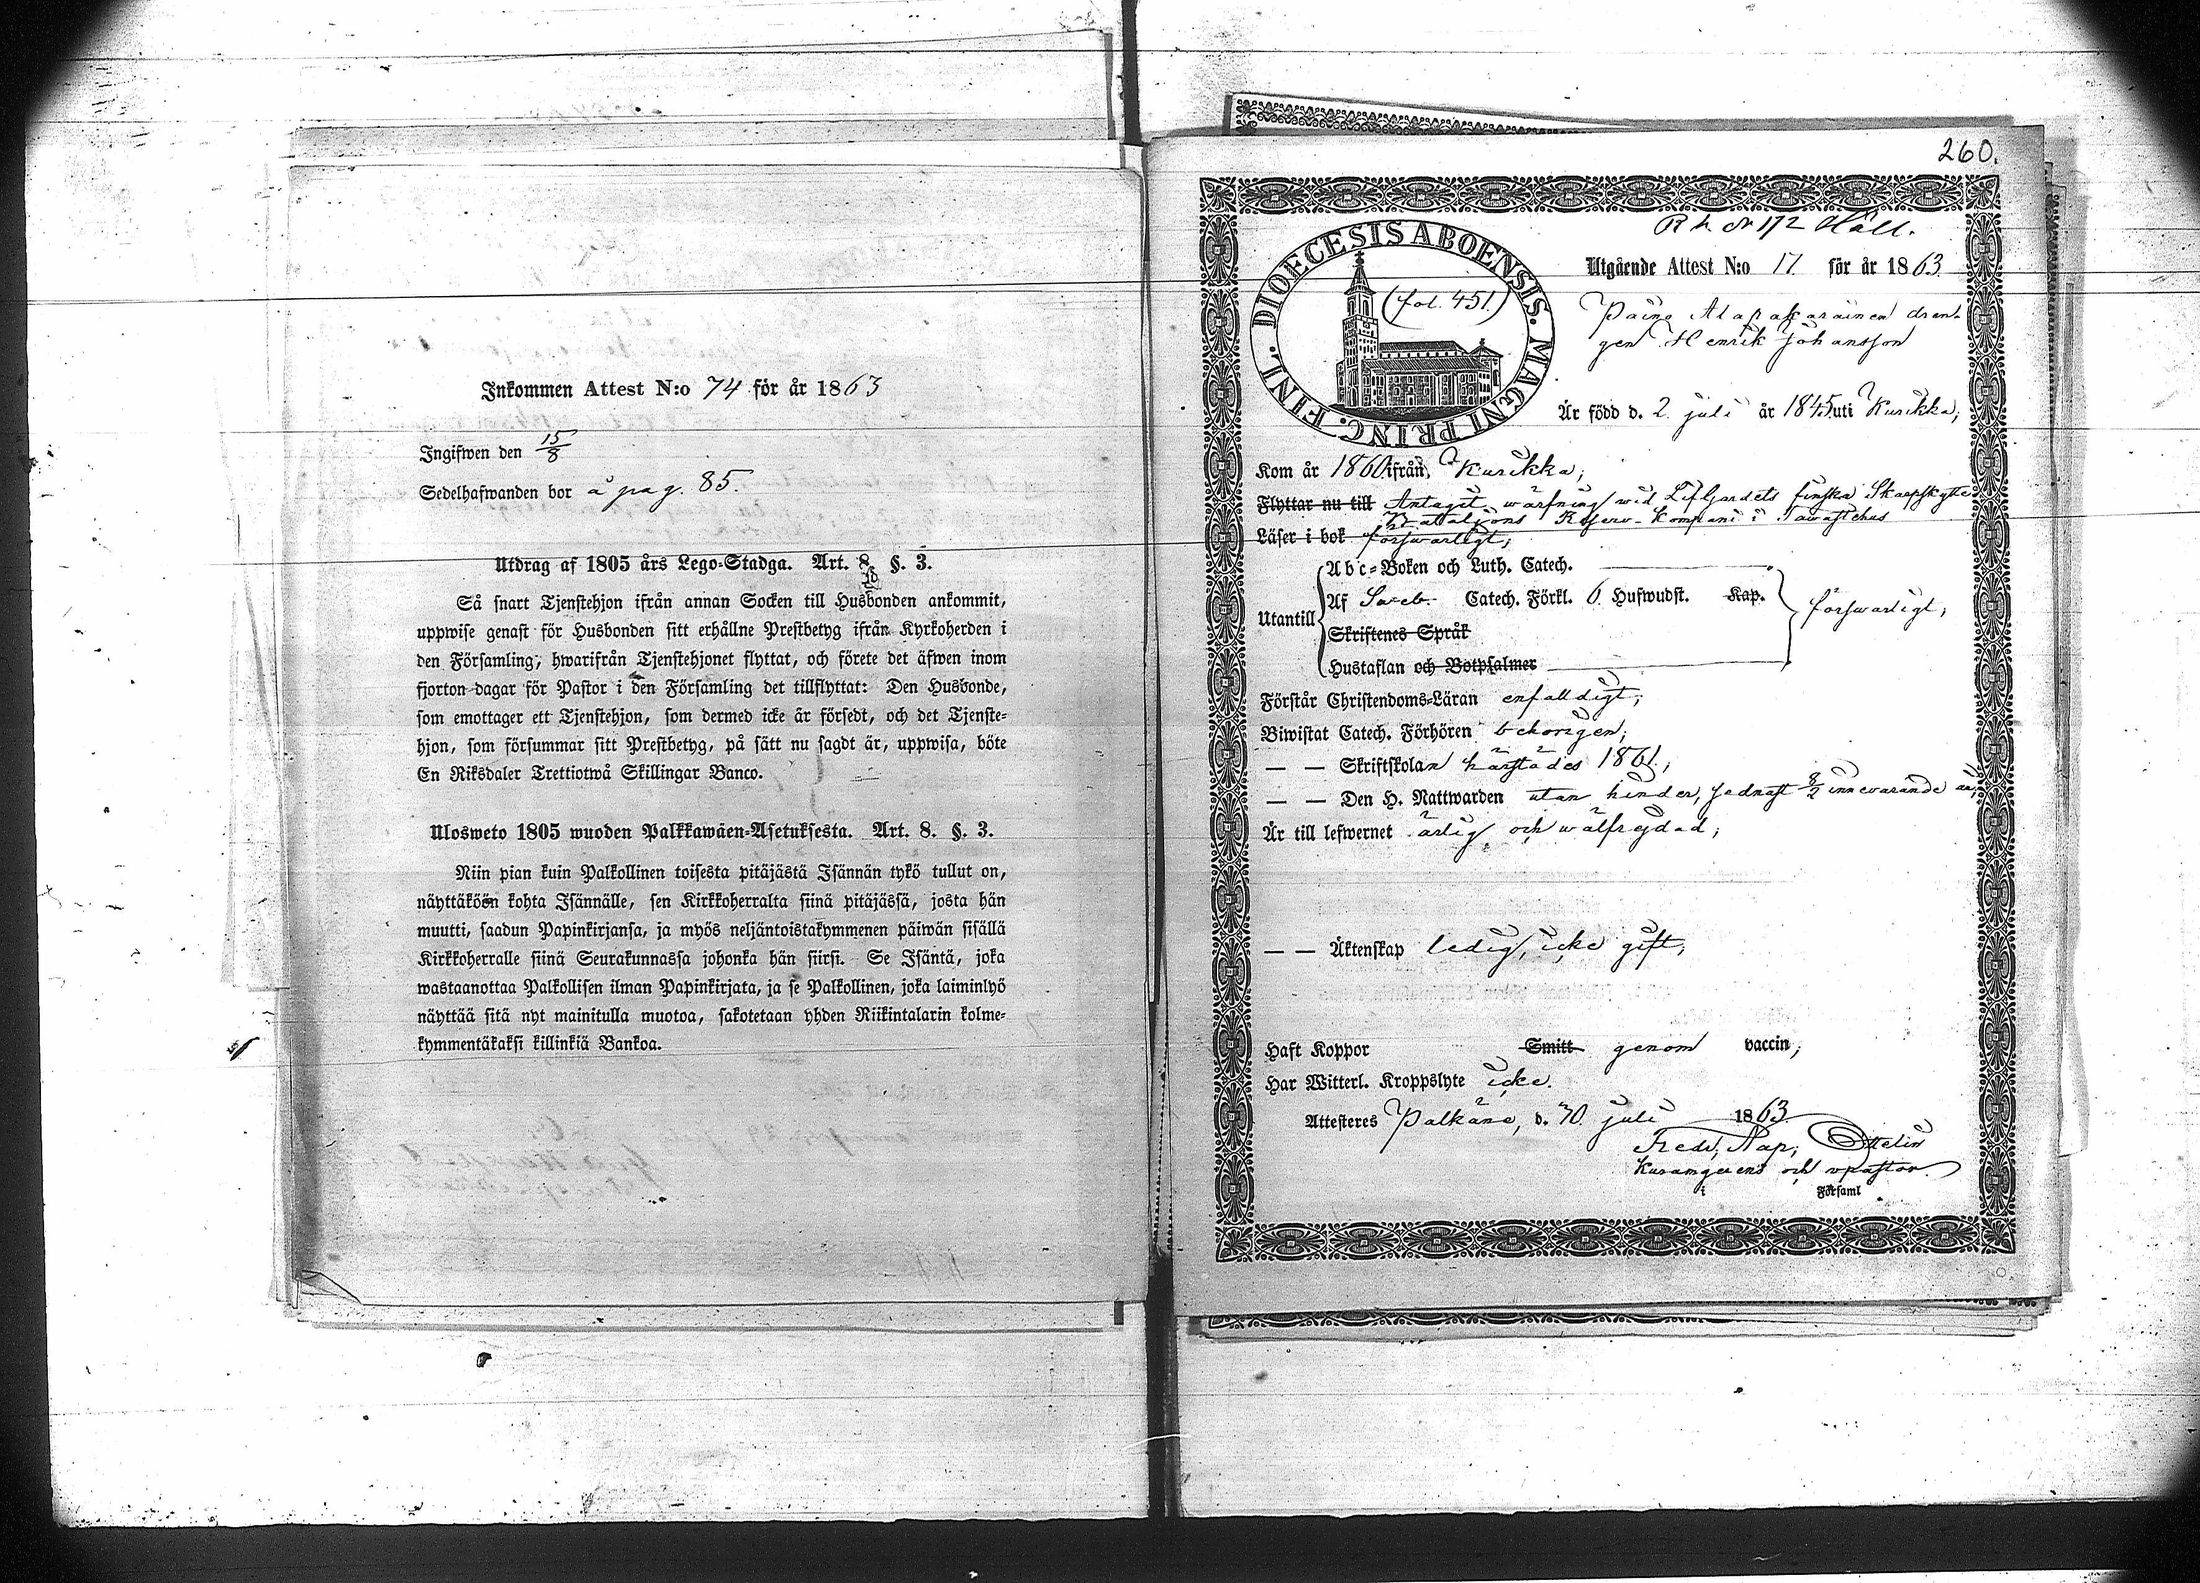 Inkommen Attest N:o 74 för år 1863
Ingifwen den 15/8
Sedelhafwanden bor å pag. 85.
Utdrag af 1805 års Lego-Stadga. Art. 8. §. 3.
Så snart Tjenstehjon ifrån annan Socken till Husbonden ankommit,
uppwise genast för Husbonden sitt erhållne Prestbetyg ifrån Kyrkoherden i
den Församling, hwarifrån Tjenstehjonet flyttat, och förete det äfwen inom
fjorton dagar för Pastor i den Församling det tillflyttat: Den Husbonde,
som emottager ett Tjenstehjon, som dermed icke är försedt, och det Tjenste-
hjon, som försummar sitt Prestbetyg, på sätt nu sagdt är, uppwisa, böte
En Riksdaler Trettiotwå Skillingar Banco.
Ulosweto 1805 wuoden Palkkawäen-Asetuksesta. Art. 8. §. 3.
Niin pian kuin Palkollinen toisesta pitäjästä Isännän tykö tullut on,
näyttäköön kohta Isännälle, sen Kirkkoherralta siinä pitäjässä, josta hän
muutti, saadun Papinkirjansa, ja myös neljäntoistakymmenen päiwän sisällä
Kirkkoherralle siinä Seurakunnassa johonka hän siirsi. Se Isäntä, joka
wastaanottaa Palkollisen ilman Papinkirjata, ja se Palkollinen, joka laiminlyö
näyttää sitä nyt mainitulla muotoa, sakotetaan yhden Riikintalarin kolme-
kymmentäkaksi killinkiä Bankoa.
260.
N 172 Häll.
DIOECESIS ABOENSIS. MAGNI PRINC. FINL.
(fol. 451.)
Utgående Attest N:o 17 för år 1863
Päino Alapakarainen dren-
gen Henrik Johansson
Är född d. 2 juli år 1845 uti Kurikka;
Kom år 1860 ifrån Kurikka;
Flyttar nu till Antagit wärfning wid Lifgardets finska Skarpskytte
Bataljons Reserv-Kompani i Tawastehus
Läser i bok förswarligt;
Utantill
Abc-Boken och Luth. Catech.
Af Sweb. Catech. Förkl. 6 Hufwudst. Kap.
Skriftenes Språk
Hustaflan och Botpsalmer
förswarligt;
Förstår Christendoms-Läran enfalldigt;
Biwistat Catech. Förhören behörigen;
— — Skriftskolan härstädes 1861;
— — Den H. Nattwarden utan hinder, sednast 8/2 innevarande år;
Är till lefwernet ärlig och wälfrejdad;
— — Äktenskap ledig, icke gift;
Haft Koppor Smitt genom vaccin;
Har Witterl. Kroppslyte icke.
Attesteres Pälkäne, d. 30 juli 1863
Fredr. Nap. Ottelin
i Församl